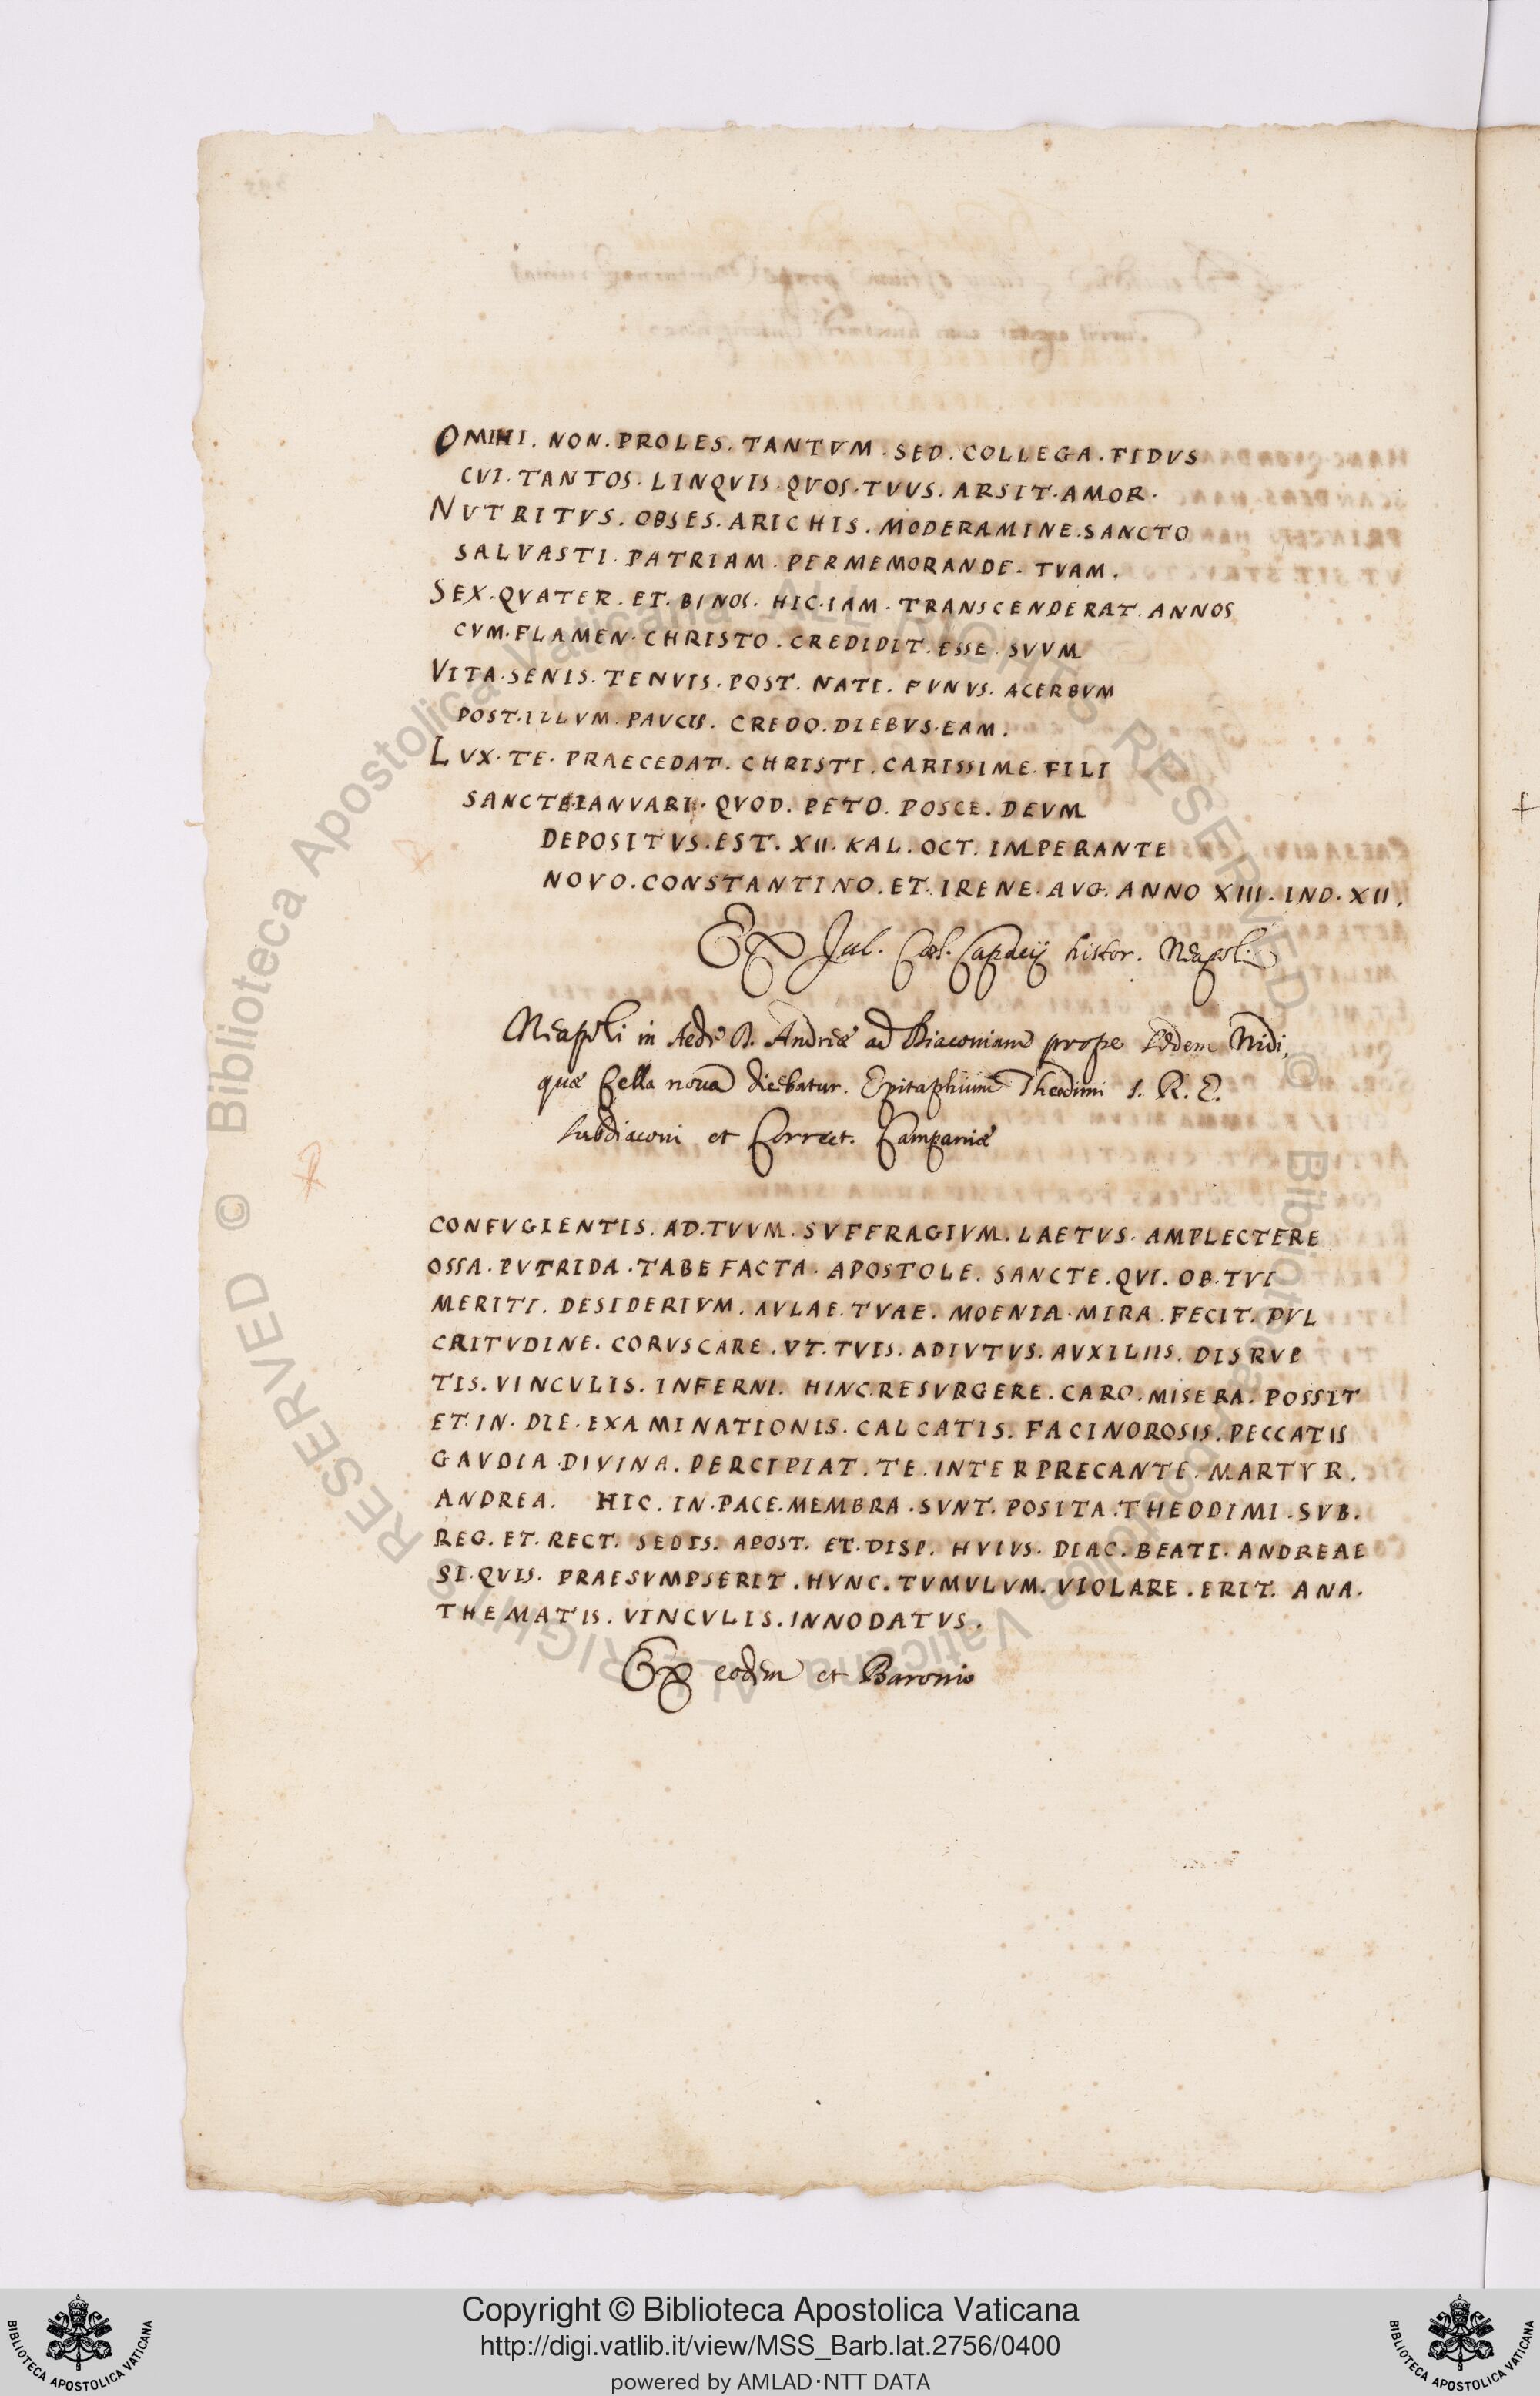 OMIHI. NON. PROLES. TANTVM. SED. COLLEGA. FIDVS
CVI. TANTOS. LINQVIS. QVOS. TVVS. ARSIT. AMOR.
NVTRITVS. OBSES. ARICHIS. MODERAMINE. SANCTO
SALVASTI. PATRIAM. PERMEMORANDE. TVAM.
SEX. QVATER. ET. BINOS. HIC. IAM. TRANSCENDERAT. ANNOS
CVM. FLAMEN. CHRISTO. CREDIDIT. ESSE. SVVM
VITA. SENIS. TENVIS. POST. NATI. FVNVS. ACERBVM
POST. ILLVM. PAVCIS. CREDO. DIEBVS. EAM.
LVX. TE. PRAECEDAT. CHRISTI. CARISSIME. FILI
SANCTE. IANVARI. QVOD. PETO. POSCE. DEVM
DEPOSITVS. EST. XII. KAL. OCT. IMPERANTE
NOVO. CONSTANTINO. ET. IRENE. AVG. ANNO XIII. IND. XII.
Ex Jul. Cæs. Capacij histor. Neapol.
Neapoli in Aede B. Andreæ ad Diaconiam prope Sedem Nidi,
quæ Cella nova dicebatur. Epitaphium Theodimi S. R. E.
Subdiaconi et Correct. Campaniæ
CONFVGIENTIS. AD. TVVM. SVFFRAGIVM. LAETVS. AMPLECTERE
OSSA. PVTRIDA. TABEFACTA. APOSTOLE. SANCTE. QVI. OB. TVI
MERITI. DESIDERIVM. AVLAE. TVAE. MOENIA. MIRA. FECIT. PVL
CRITVDINE. CORVSCARE. VT. TVIS. ADIVTVS. AVXILIIS. DISRVP
TIS. VINCVLIS. INFERNI. HINC. RESVRGERE. CARO. MISERA. POSSIT
ET. IN. DIE. EXAMINATIONIS. CALCATIS. FACINOROSIS. PECCATIS
GAVDIA. DIVINA. PERCIPIAT. TE. INTERPRECANTE. MARTYR.
ANDREA. HIC. IN. PACE. MEMBRA. SVNT. POSITA. THEODIMI. SVB.
REG. ET. RECT. SEDIS. APOST. ET. DISP. HVIVS. DIAC. BEATI. ANDREAE
SI. QVIS. PRAESVMPSERIT. HVNC. TVMVLVM. VIOLARE. ERIT. ANA.
THEMATIS. VINCVLIS. INNODATVS.
Ex eodem et Baronio
Copyright © Biblioteca Apostolica Vaticana
http://digi.vatlib.it/view/MSS_Barb.lat.2756/0400
powered by AMLAD·NTT DATA
BIBLIOTECA APOSTOLICA VATICANA
BIBLIOTECA APOSTOLICA VATICANA
© Biblioteca Apostolica Vaticana ALL RIGHTS RESERVED © Biblioteca Apostolica Vaticana ALL RIGHTS RESERVED